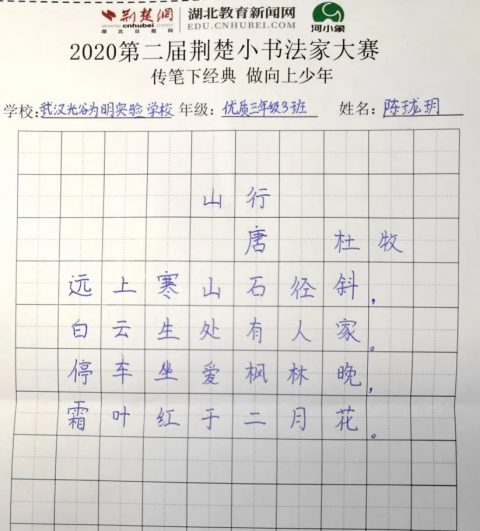 荆楚网 湖北教育新闻网 河小象
www.cnhubei.com EDU.CNHUBEI.COM
湖北日报网
2020第二届荆楚小书法家大赛
传笔下经典 做向上少年
学校:武汉光谷为明实验学校 年级:优质三年级3班 姓名:陈珑玥
山行
唐 杜牧
远上寒山石径斜,
白云生处有人家。
停车坐爱枫林晚,
霜叶红于二月花。